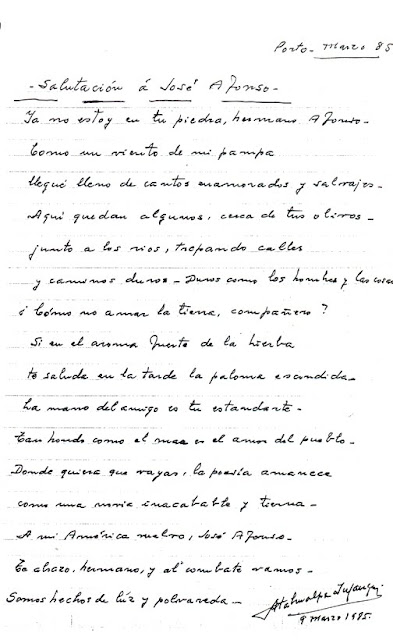 Porto - Marzo 85
- Salutación á José Afonso -
Ya no estoy en tu piedra, hermano Afonso -
Como un viento de mi pampa
llegué lleno de cantos enamorados y salvajes -
Aquí quedan algunos, cerca de tus olivos -
junto a los rios, trepando calles
y caminos duros - Duros como los hombres y las cosas
¿Cómo no amar la tierra, compañero?
Si en el aroma fuerte de la hierba
te saluda en la tarde la paloma escondida -
La mano del amigo es tu estandarte -
Tan hondo como el mar es el amor del pueblo -
Donde quiera que vayas, la poesía amanece
como una novia inacabable y tierna -
A mi América vuelvo, José Afonso -
Te abrazo, hermano, y al combate vamos -
Somos hechos de lúz y polvareda -
Atahualpa Yupanqui
9 marzo 1985.